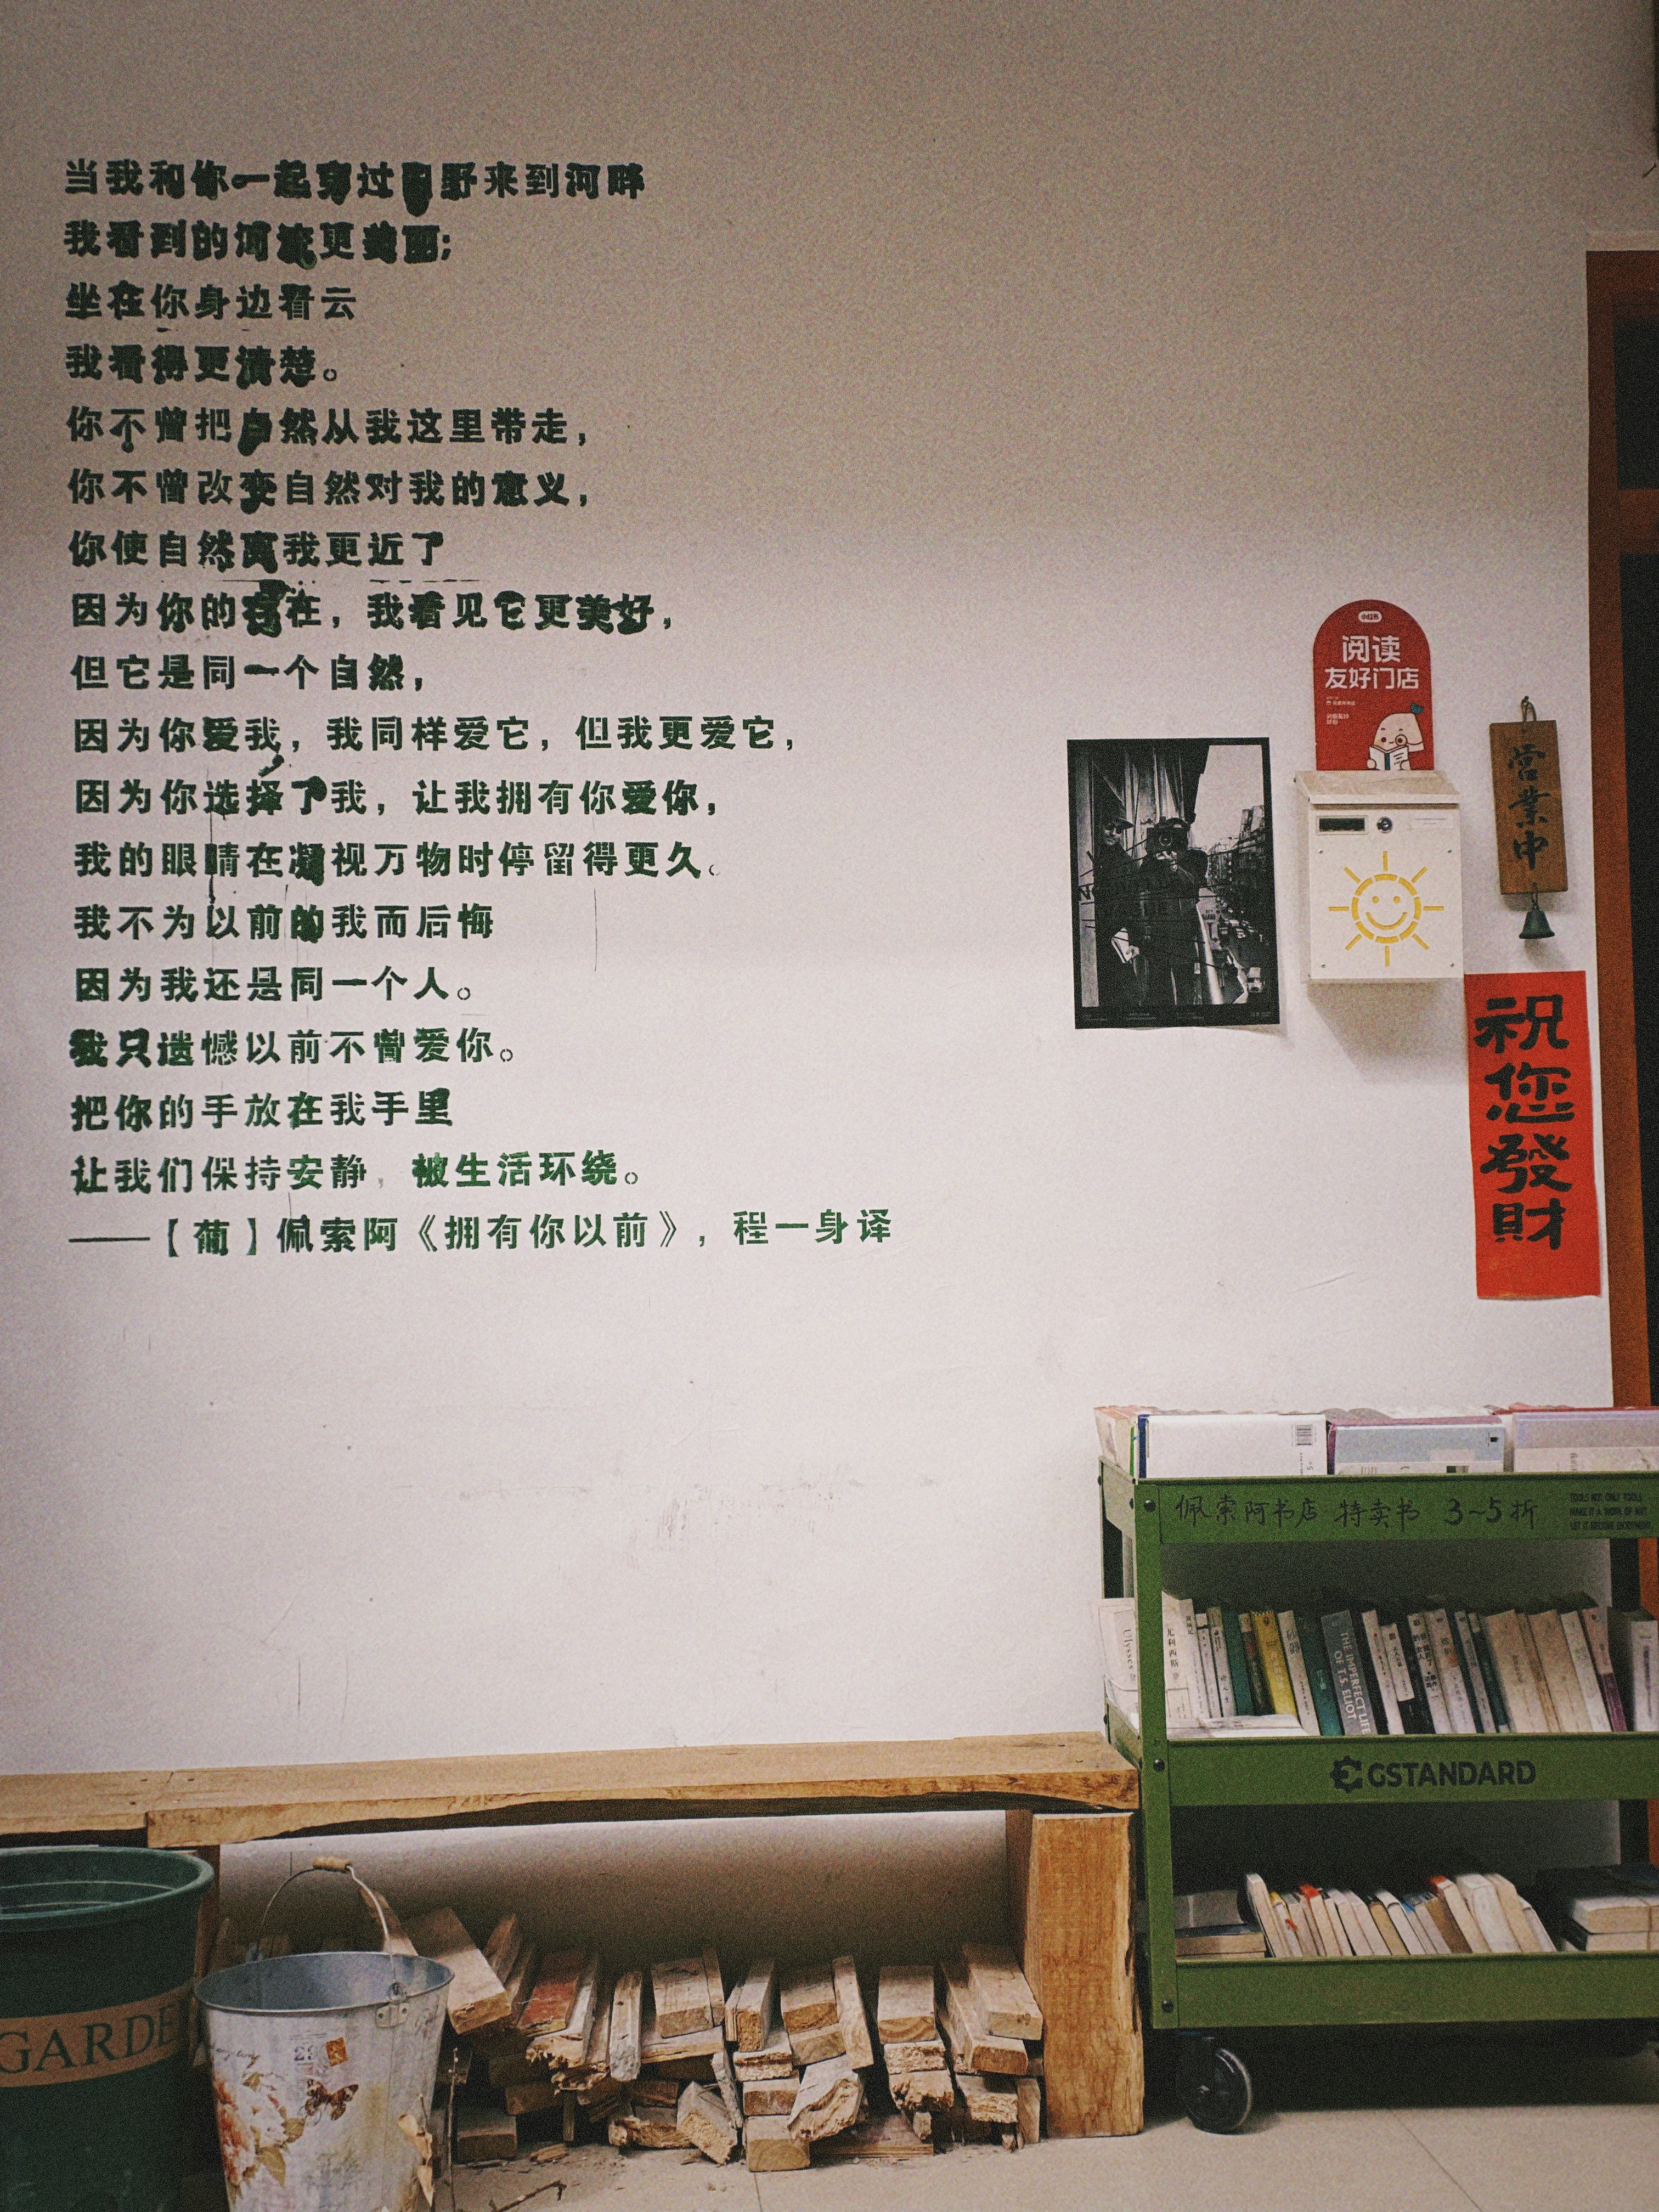 当我和你一起穿过田野来到河畔
我看到的河流更美丽;
坐在你身边看云
我看得更清楚。
你不曾把自然从我这里带走，
你不曾改变自然对我的意义，
你使自然离我更近了
因为你的存在，我看见它更美好，
但它是同一个自然，
因为你爱我，我同样爱它，但我更爱它，
因为你选择了我，让我拥有你爱你，
我的眼睛在凝视万物时停留得更久。
我不为以前的我而后悔
因为我还是同一个人。
我只遗憾以前不曾爱你。
把你的手放在我手里
让我们保持安静，被生活环绕。
——【葡】佩索阿《拥有你以前》，程一身译
小红书
阅读
友好门店
营業中
祝您發財
佩索阿书店 特卖书 3~5折
TOOLS NOT ONLY TOOLS
MAKE IT A WORK OF ART
LET IT BECOME ENJOYMENT
Ulysses
尤利西斯
THE IMPERFECT LIFE
OF T.S. ELIOT
GSTANDARD
GARDE